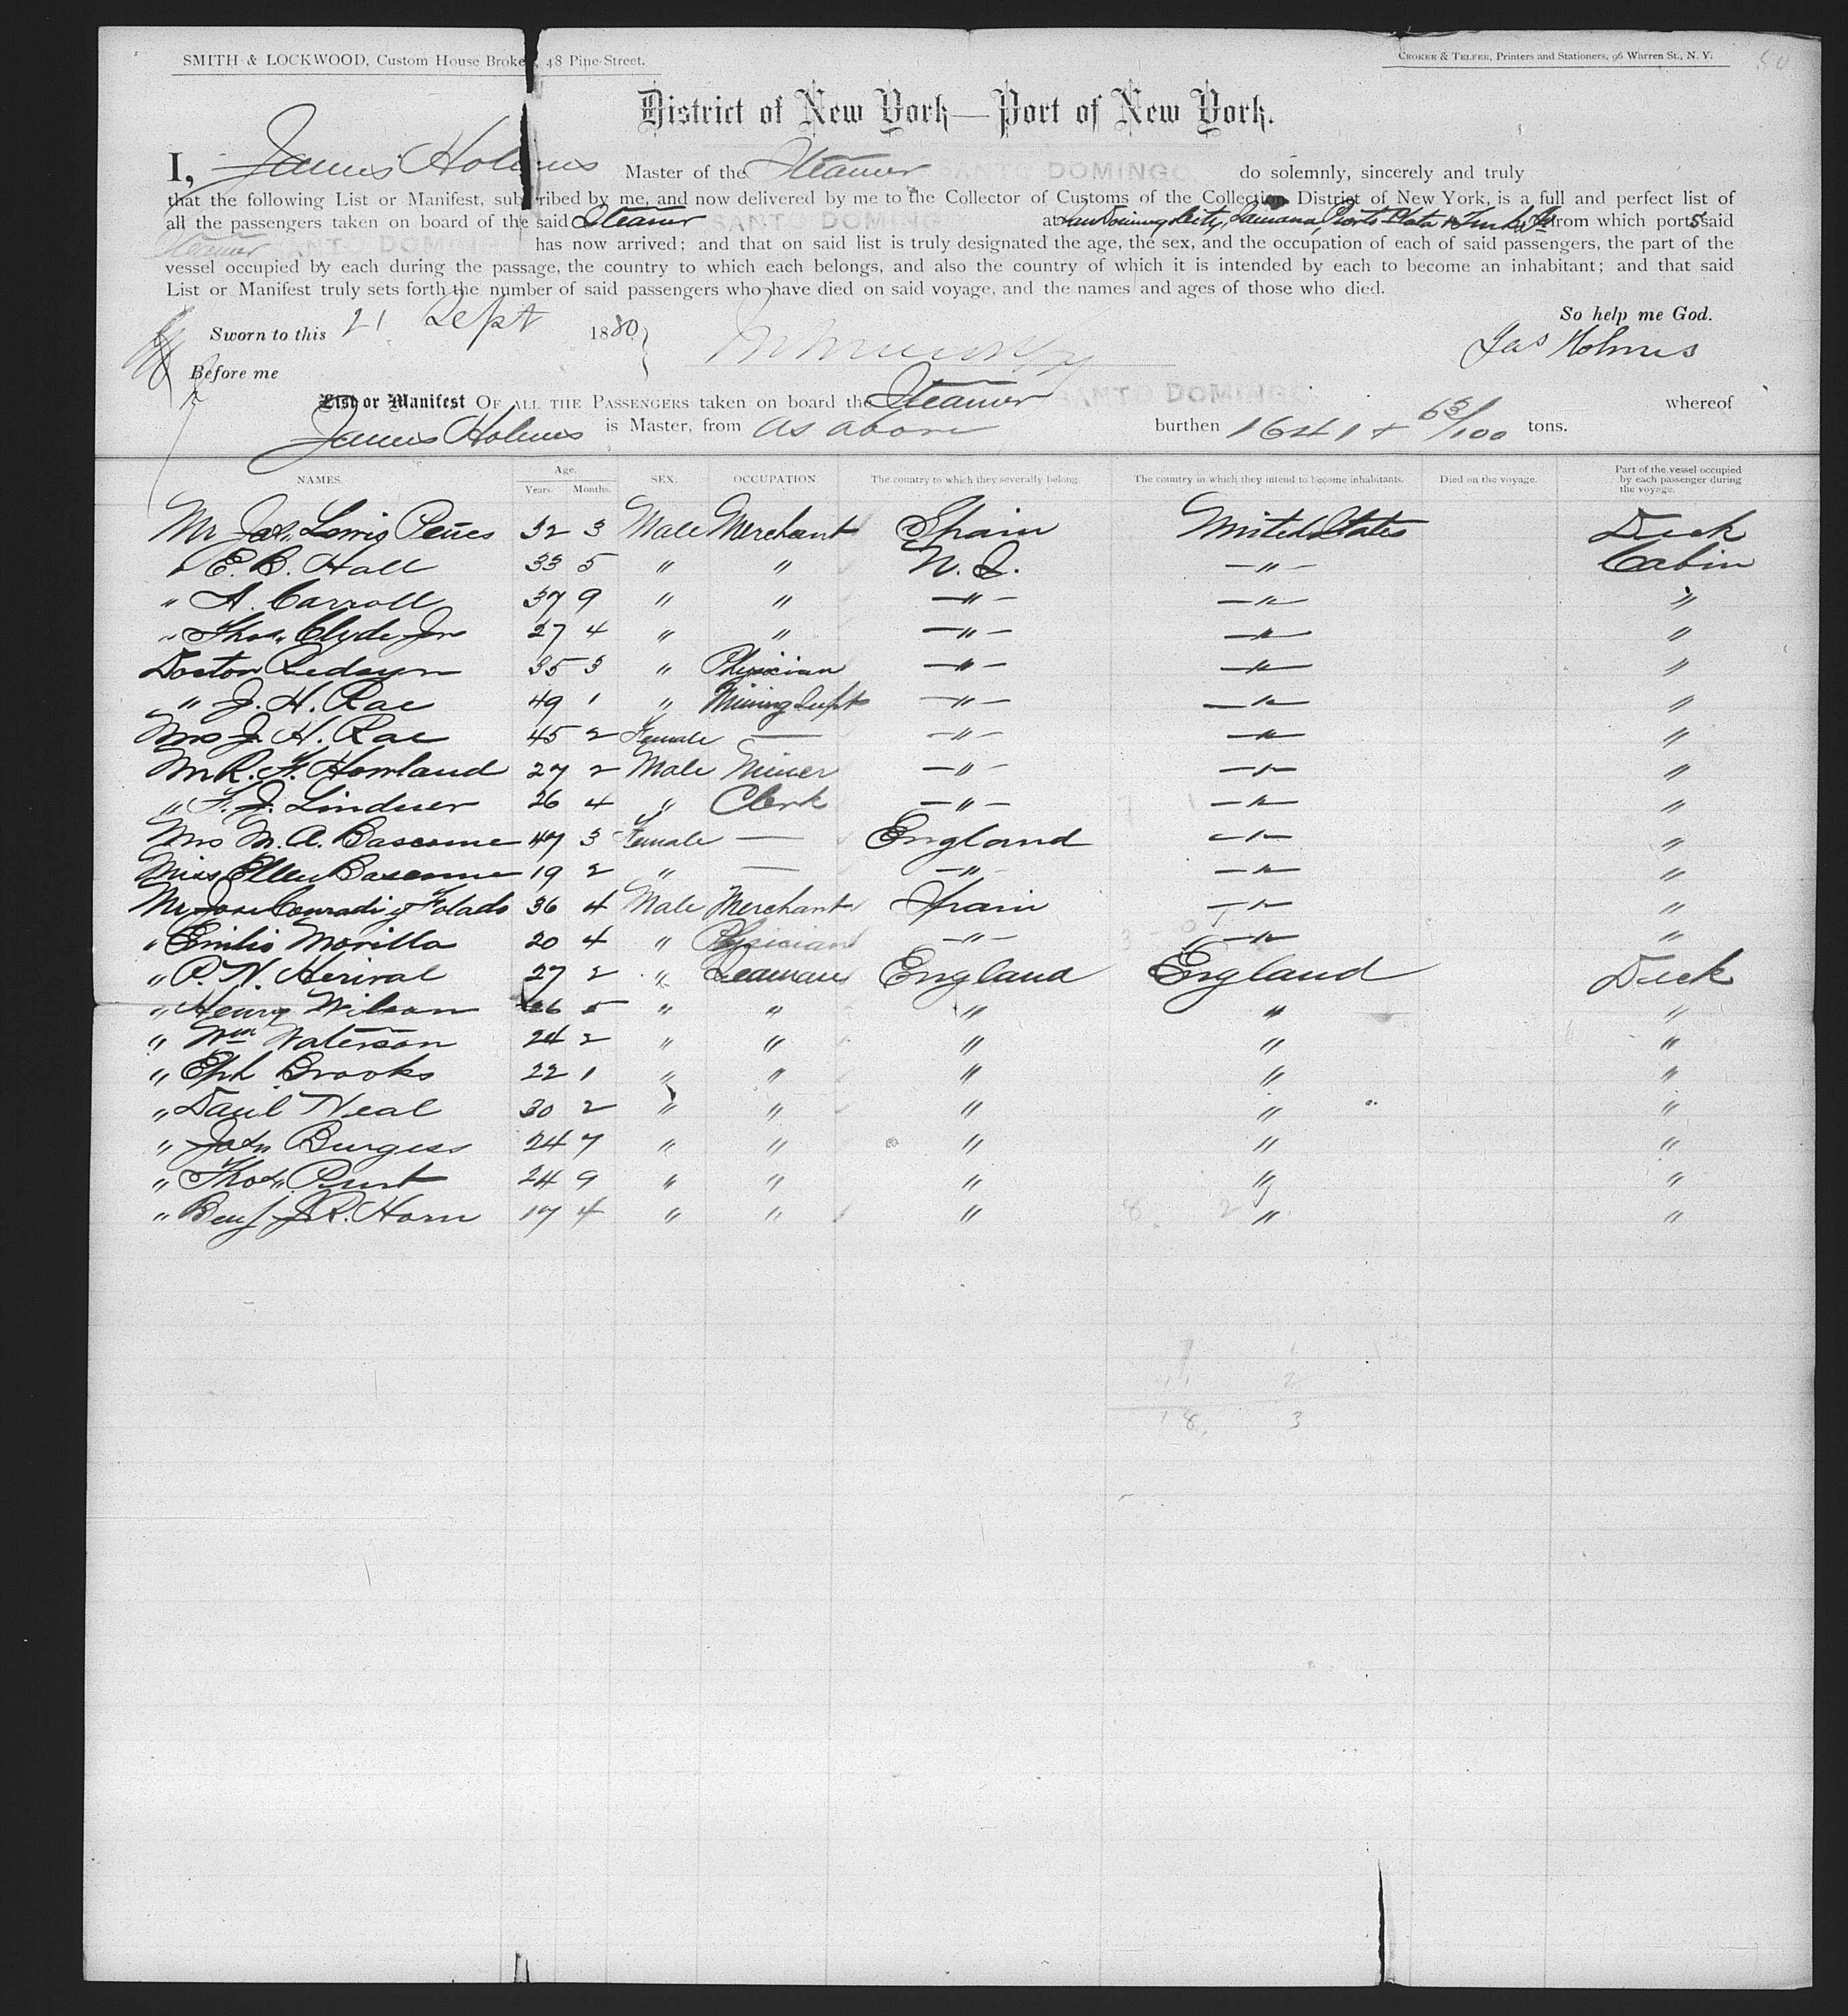 SMITH & LOCKWOOD, Custom House Broker, 48 Pine Street.
CROKER & TELFER, Printers and Stationers, 96 Warren St., N. Y.
District of New York—Port of New York.
I, James Holmes Master of the Steamer SANTO DOMINGO. do solemnly, sincerely and truly
that the following List or Manifest, subscribed by me, and now delivered by me to the Collector of Customs of the Collection District of New York, is a full and perfect list of
all the passengers taken on board of the said Steamer SANTO DOMINGO at San Domingo City, Samana, Puerto Plata & Turks Is from which ports said
Steamer SANTO DOMINGO has now arrived; and that on said list is truly designated the age, the sex, and the occupation of each of said passengers, the part of the
vessel occupied by each during the passage, the country to which each belongs, and also the country of which it is intended by each to become an inhabitant; and that said
List or Manifest truly sets forth the number of said passengers who have died on said voyage, and the names and ages of those who died.
So help me God.
Sworn to this 21 Sept 1880
Jas Holmes
Before me
List or Manifest OF ALL THE PASSENGERS taken on board the Steamer SANTO DOMINGO whereof
James Holmes is Master, from as above burthen 1641 + 65/100 tons.
NAMES. Age. Years. Months. SEX. OCCUPATION. The country to which they severally belong. The country in which they intend to become inhabitants. Died on the voyage. Part of the vessel occupied by each passenger during the voyage.
Mr 32 3 Male Merchant Spain United States Deck
" E. B. Hall 33 5 " " —"— Cabin
" A. Carroll 37 9 " " —"— —"— "
" Thos. Clyde Jr 27 4 " " —"— —"— "
Doctor 35 3 " Physician —"— —"— "
" J. H. Rae 49 1 " Mining Supt —"— —"— "
Mrs J. H. Rae 45 2 Female — —"— —"— "
Mr R. F. Howland 27 2 Male Miner —"— —"— "
" F. J. Lindner 26 4 " Clerk —"— —"— "
Mrs M. A. Bascome 47 3 Female — England —"— "
Miss Ellen Bascome 19 2 " — —"— —"— "
Mr Jose Conradi y 36 4 Male Merchant Spain —"— "
" Emilio Morillo 20 4 " Physician —"— —"— "
" P. N. Herival 27 2 " Seaman England England Deck
" Henry Wilson 5 " " " " "
" Wm Waterson 24 2 " " " " "
" Eph Brooks 22 1 " " " " "
" Danl Neal 30 2 " " " " "
" Burgess 24 7 " " " " "
" Thos. 24 9 " " " " "
" Benj J. R. Horn 17 4 " " " " "
8. 2
7
11 2
18, 3